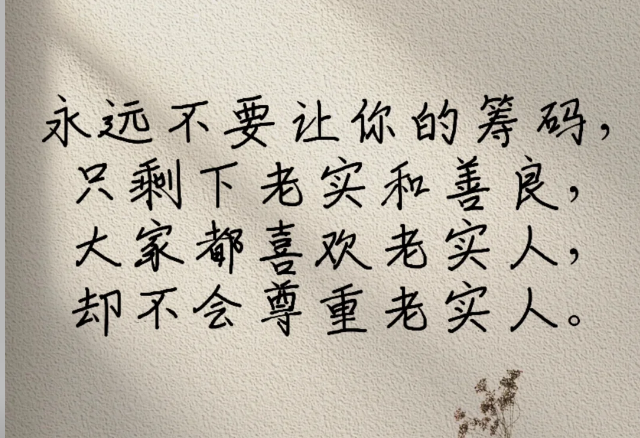 永远不要让你的筹码，
只剩下老实和善良，
大家都喜欢老实人，
却不会尊重老实人。